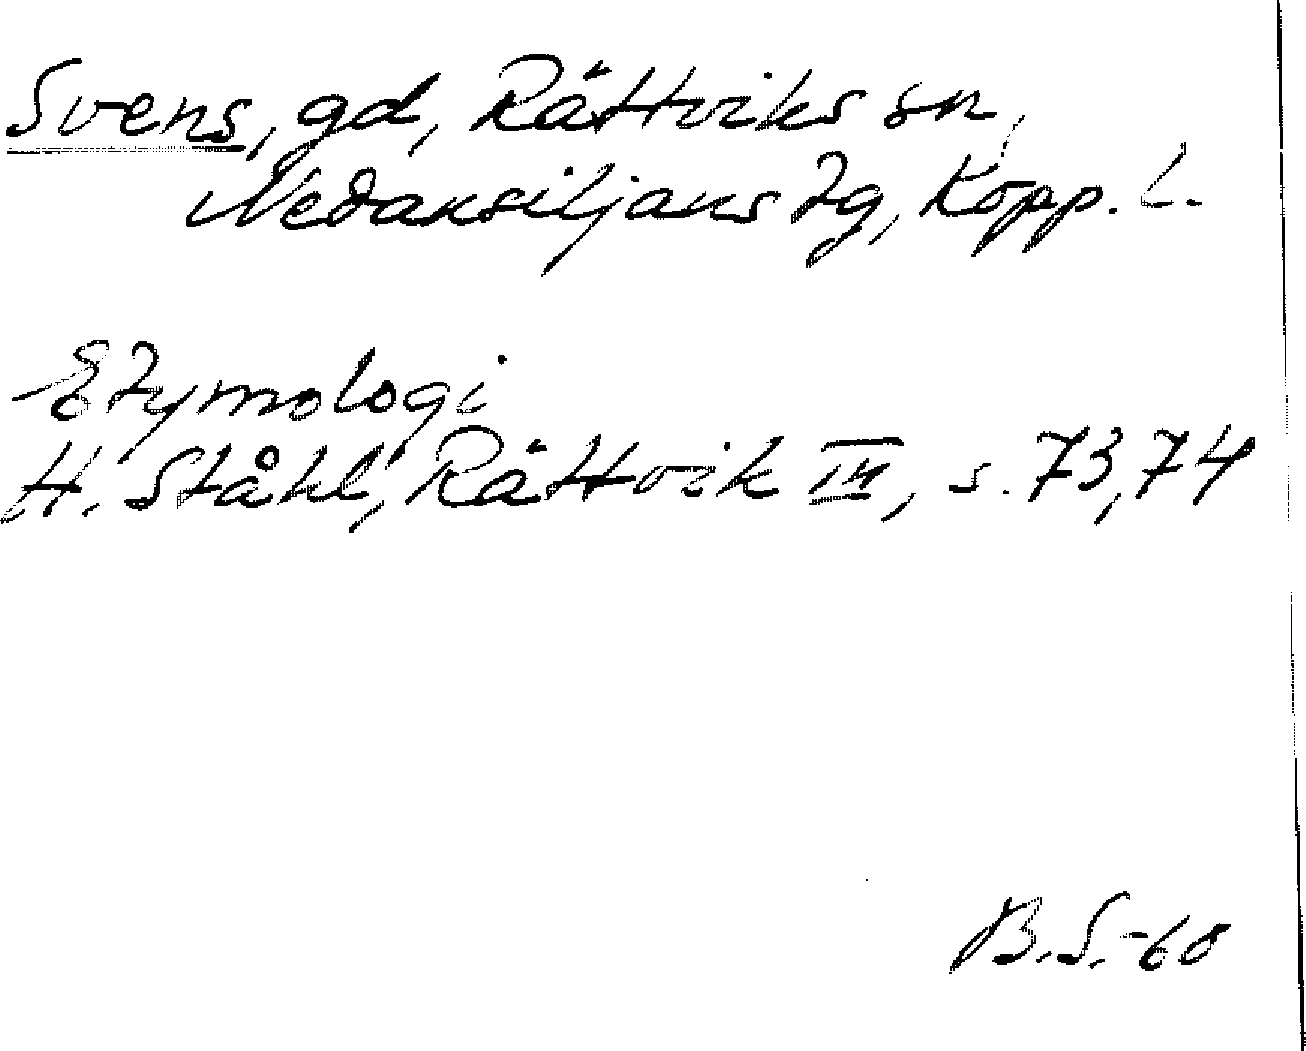 Svens, gd, Rättviks sn,
Nedansiljans tg, Kopp. L.
Etymologi
H. Ståhl, Rättvik III, s. 73, 74
B.S. -60